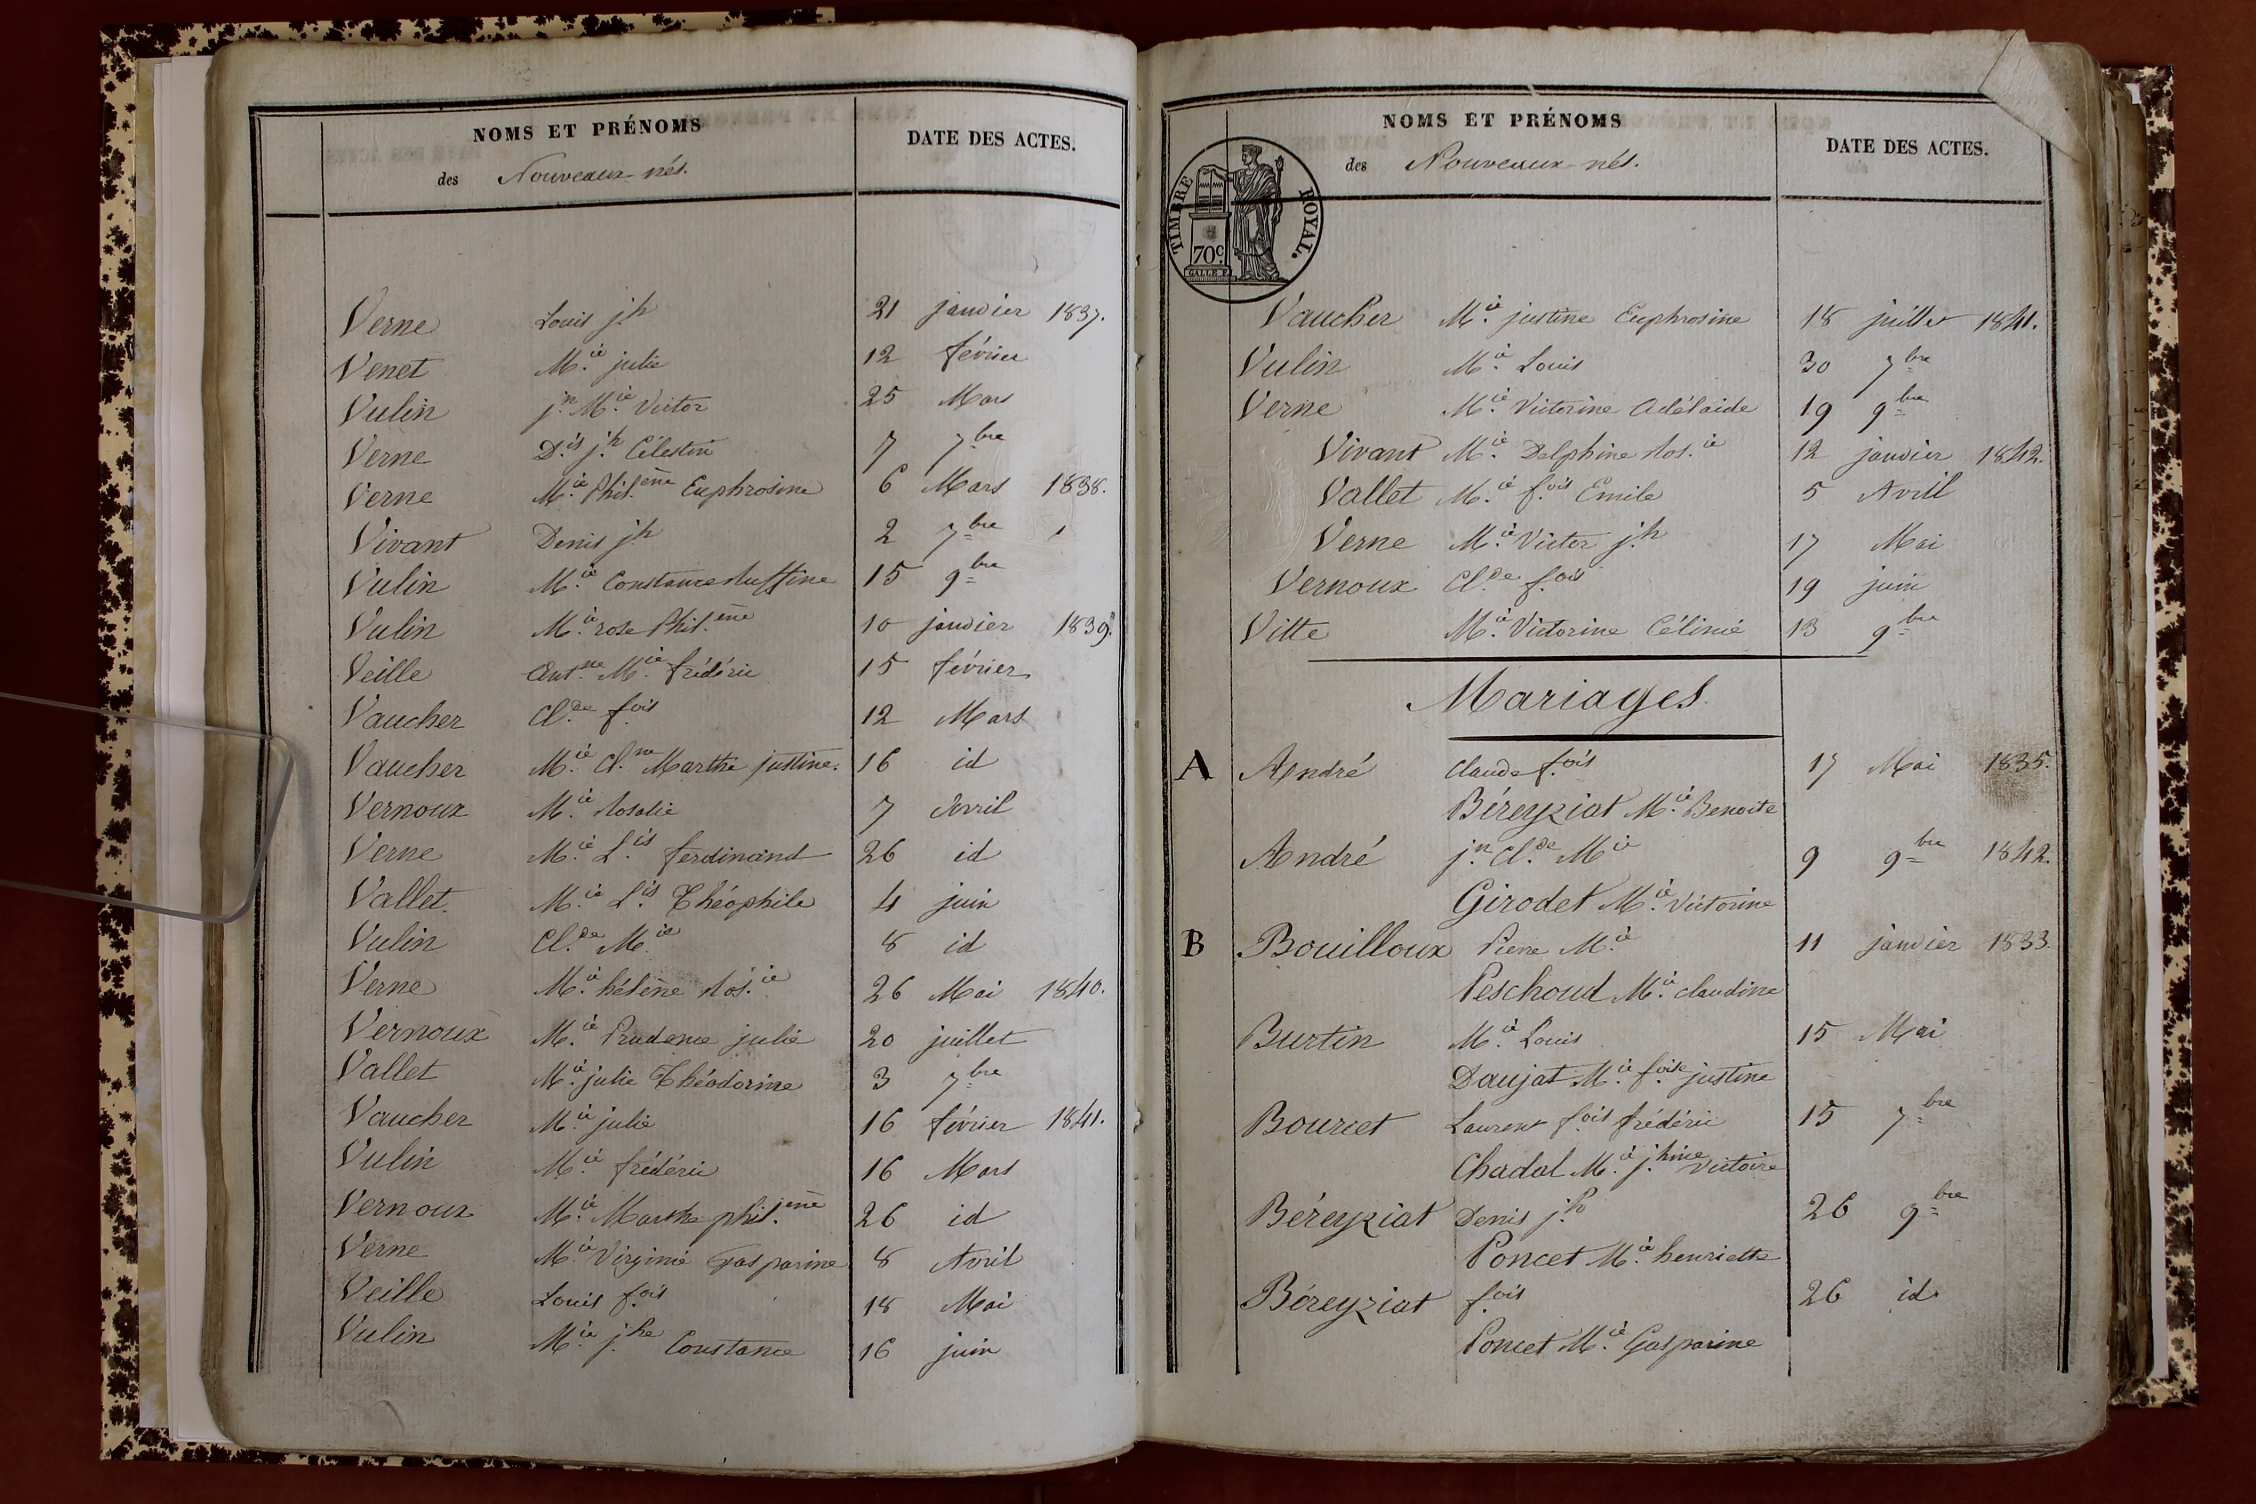 NOMS ET PRÉNOMS
des Nouveaux-nés.
DATE DES ACTES.
Verne Louis j.h 21 janvier 1837.
Venet M.ie julie 12 février
Vulin j.n M.ie Victor 25 Mars
Verne D.is j.h Célestin 7 7bre
Verne M.ie Phil.ène Euphrosine 6 Mars 1838.
Vivant Denis j.h 2 7bre
Vulin M.ie Constance 15 9bre
Vulin M.ie rose Phil.ène 10 janvier 1839.
Veille Ant.ne M.ie frédéric 15 février
Vaucher Cl.de f.ois 12 Mars
Vaucher M.ie Cl.ne Marthe justine. 16 id
Vernoux M.ie Rosalie 7 Avril
Verne M.ie L.is ferdinand 26 id
Vallet M.ie L.is Théophile 4 juin
Vulin Cl.de M.ie 8 id
Verne M.ie hélène Ros.ie 26 Mai 1840.
Vernoux M.ie Prudence julie 20 juillet
Vallet M.ie julie Théodorine 3 7bre
Vaucher M.ie julie 16 février 1841.
Vulin M.ie frédéric 16 Mars
Vernoux M.ie Marthe phil.ène 26 id
Verne M.ie Virginie Gasparine 8 Avril
Veille Louis f.ois 18 Mai
Vulin M.ie j.he Constance 16 juin
NOMS ET PRÉNOMS
des Nouveaux-nés.
DATE DES ACTES.
TIMBRE ROYAL.
70c.
Vaucher M.ie justine Euphrosine 18 juillet 1841.
Vulin M.ie Louis 30 7bre
Verne M.ie Victorine Adélaide 19 9bre
Vivant M.ie Delphine Ros.ie 12 janvier 1842.
Vallet M.ie f.ois Emile 5 Avril
Verne M.ie Victor j.h 17 Mai
Vernoux Cl.de f.ois 19 juin
Vitte M.ie Victorine Célinie 13 9bre
Mariages
A André Claude f.ois 17 Mai 1835.
Béreyziat M.ie Benoite
André j.n Cl.de M.ie 9 9bre 1842.
Girodet M.ie Victorine
B Bouilloux Pierre M.ie 11 janvier 1833.
Peschoud M.ie claudine
Burtin M.ie Louis 15 Mai
Daujat M.ie f.oise justine
Bourcet Laurent f.ois frédéric 15 7bre
Chadal M.ie j.hine Victoire
Béreyziat Denis j.h 26 9bre
Poncet M.ie henriette
Béreyziat f.ois 26 id
Poncet M.ie Gasparine